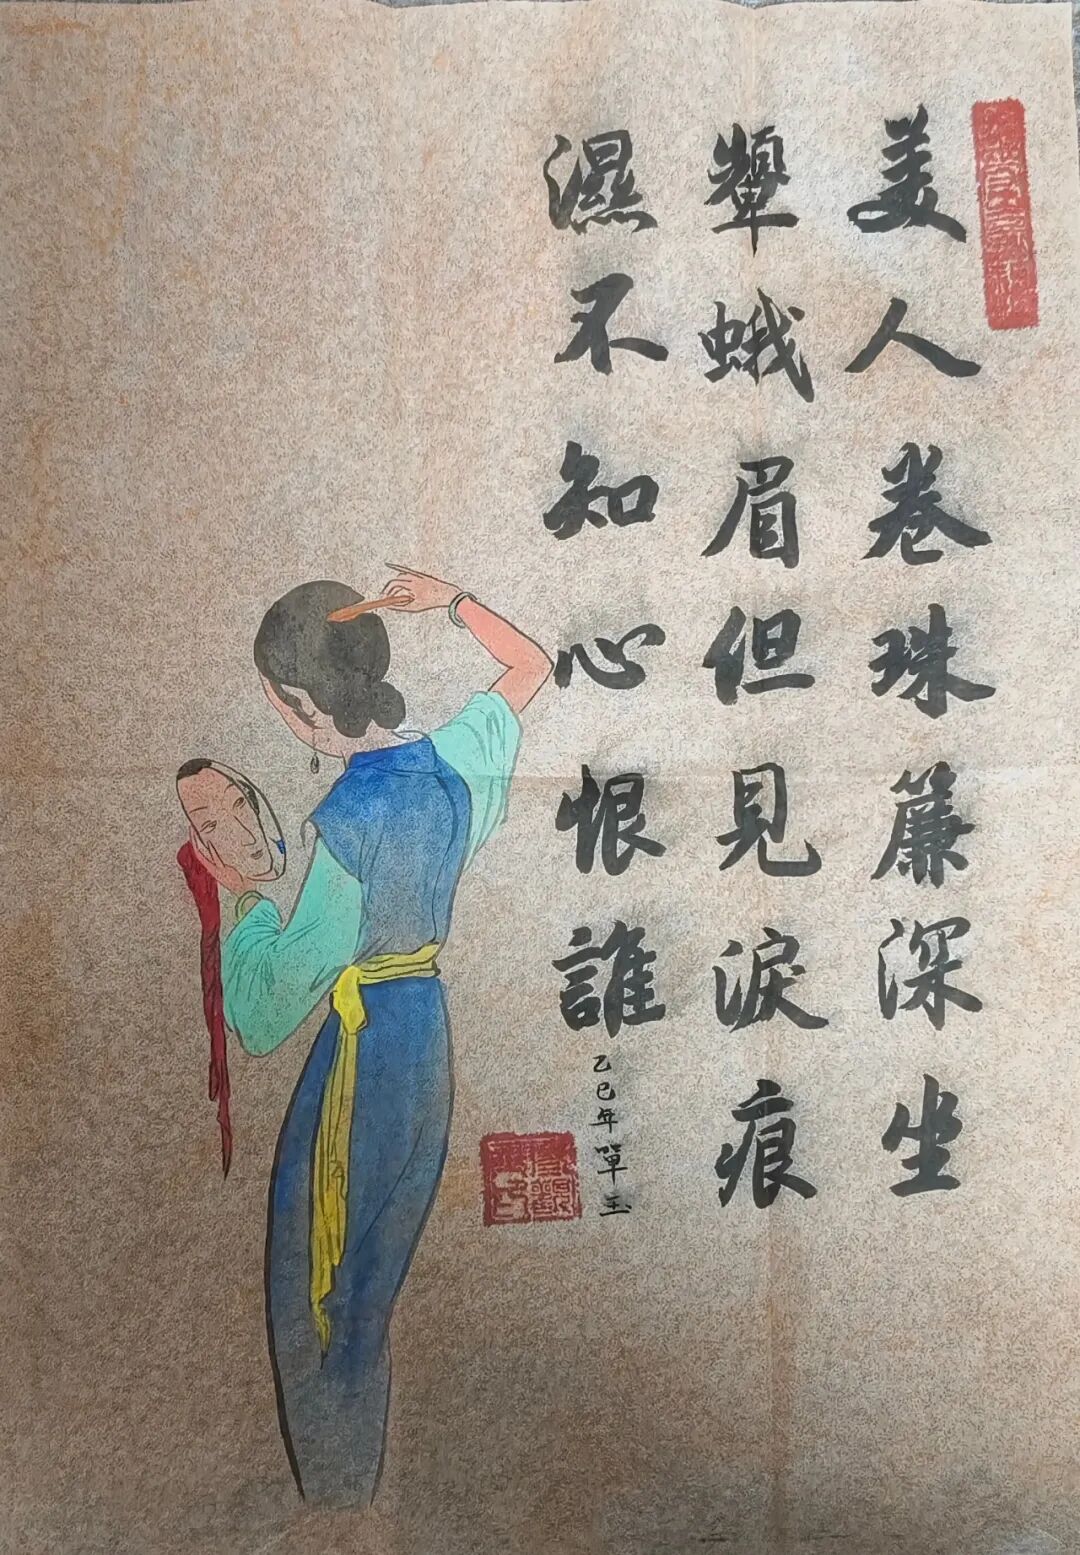 美人卷珠簾深坐
顰蛾眉但見淚痕
濕不知心恨誰
乙巳年單玉